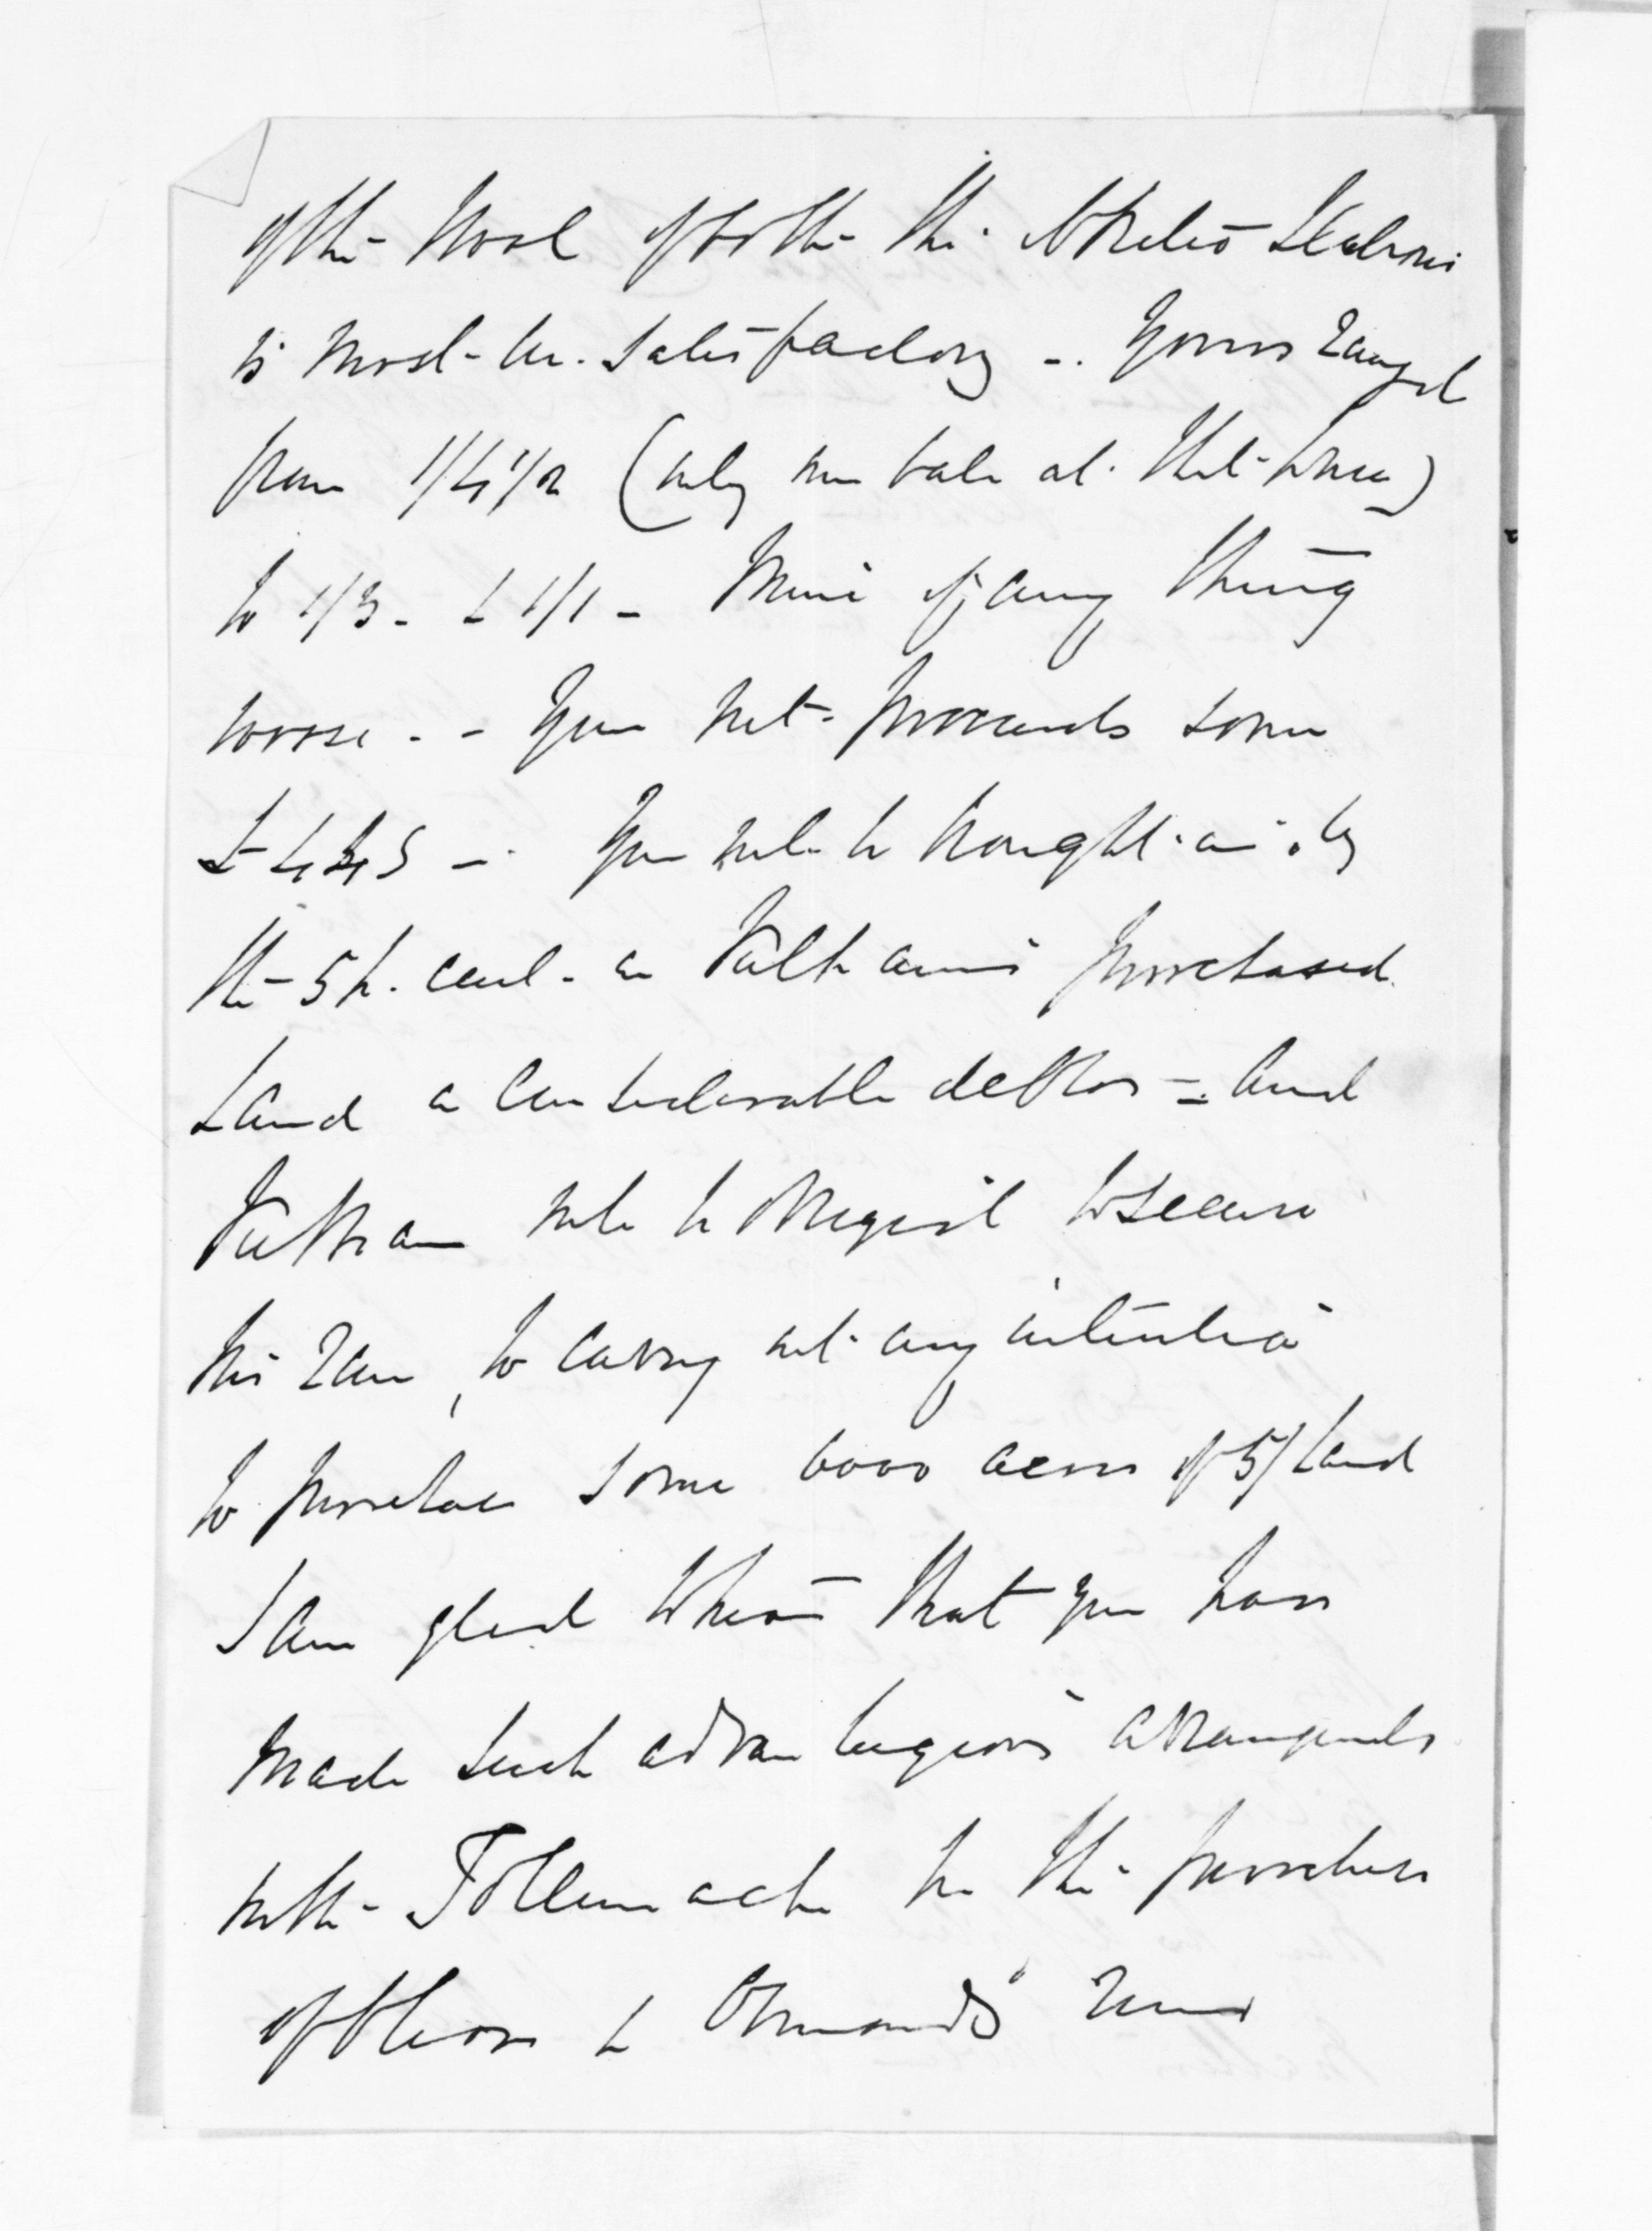 of the Wool of both the Stations
is most un-satisfactory -. Yours ranged
from 1/4 1/2 (only one bale at that price)
to 1/3 - & 1/1 - Mine if any thing
worse - - Your net proceeds some
£445 - You will be brought in by
the 5 p. cent. on purchased
Land a considerable debtor - and
will be obliged to secure
his run, to carry out any intention
to purchase some 6000 acres of 5/ Land
I am glad that you have
made such advantageous arrangements
with Tollemache for the purchase
of & Ormond's runs